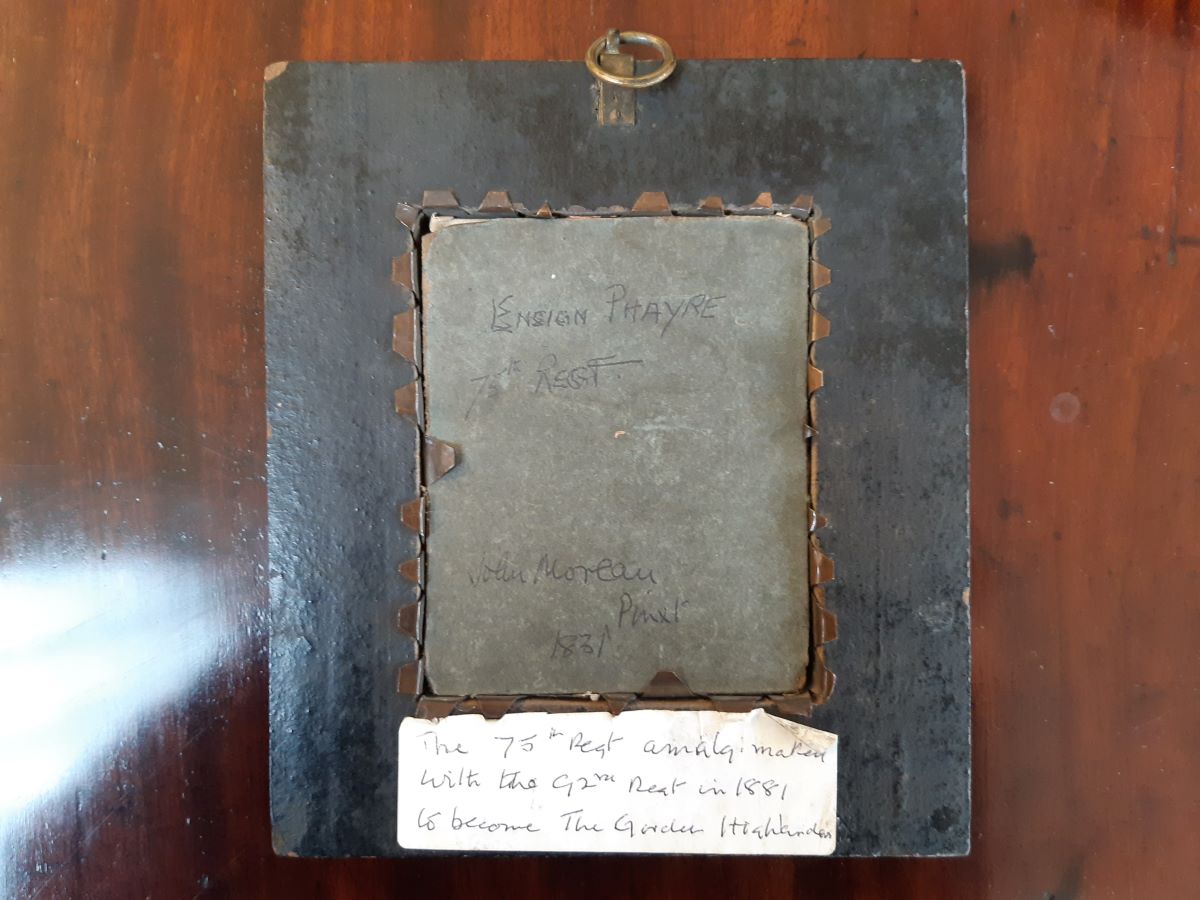 ENSIGN PHAYRE
75th REGT.
John Moreau
Pinxt
1831
The 75th Regt amalgimated
with the 92nd Regt in 1881
to become The Gorden Highlanders